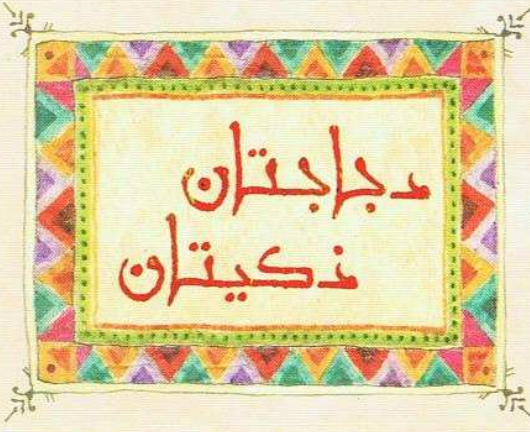 دجاجتان
ذكيتان